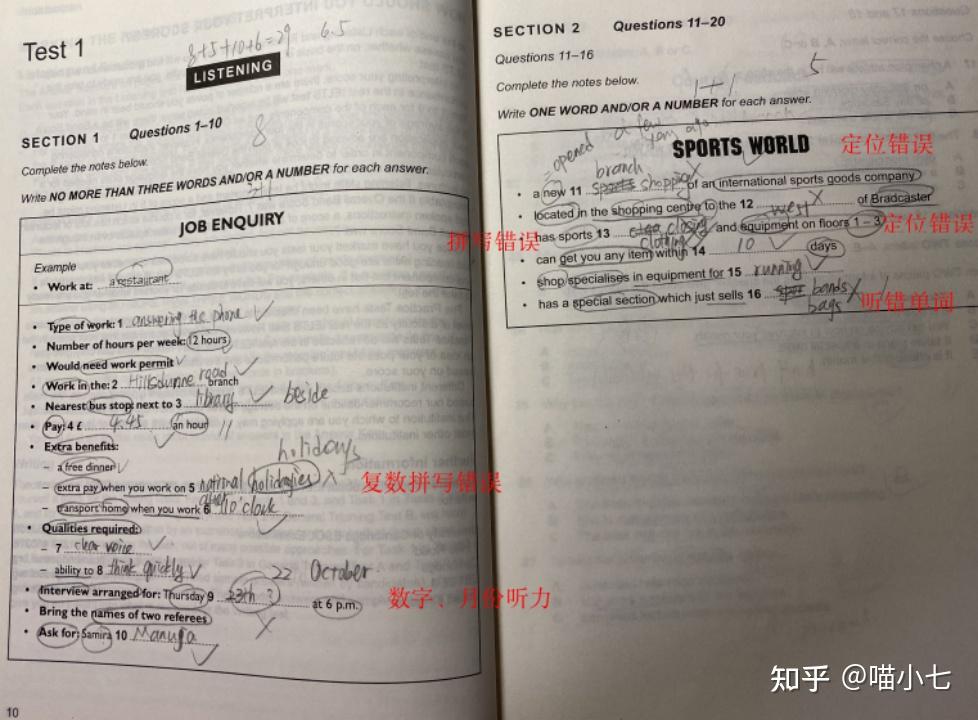 Test 1
8+5+10+6=29
6.5
LISTENING
SECTION 1 Questions 1–10
8
Complete the notes below.
Write NO MORE THAN THREE WORDS AND/OR A NUMBER for each answer.
JOB ENQUIRY
Example
• Work at: a restaurant
• Type of work: 1 answering the phone
• Number of hours per week: 12 hours
• Would need work permit
• Work in the: 2 Hillsdunne road branch
• Nearest bus stop: next to 3 library beside
• Pay: 4 £ 4.45 an hour
• Extra benefits:
– a free dinner
holidays
– extra pay when you work on 5 national
复数拼写错误
– transport home when you work 6 after 11 o'clock
• Qualities required:
– 7 clear voice
– ability to 8 think quickly
22 October
• Interview arranged for: Thursday 9 23th ? at 6 p.m.
数字、月份听力
• Bring the names of two referees
• Ask for: Samira 10 Manuja
10
SECTION 2 Questions 11–20
Questions 11–16
5
Complete the notes below.
1+1
Write ONE WORD AND/OR A NUMBER for each answer.
opened a few
SPORTS WORLD
定位错误
branch
• a new 11 shopping of an international sports goods company
• located in the shopping centre to the 12 west of Bradcaster
• has sports 13 closing and equipment on floors 1 – 3
拼写错误
定位错误
clothing
• can get you any item within 14 10 days
• shop specialises in equipment for 15 running
• has a special section which just sells 16 bands
听错单词
bags
知乎 @喵小七